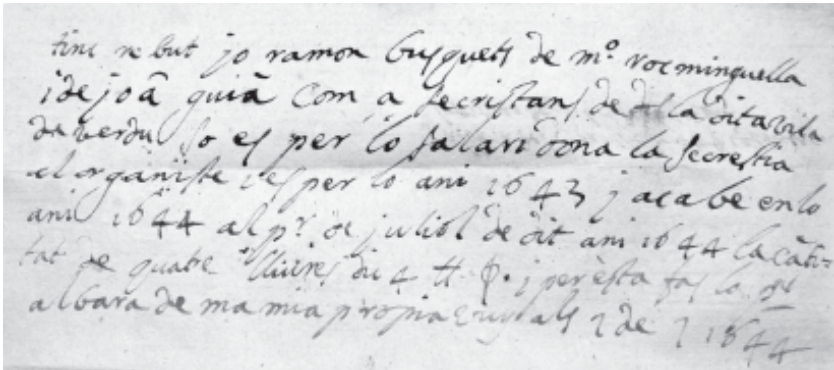 tinc rebut jo ramon busquets de mº roc minguella
i de joā guiā com a secristans de la dita vila
de verdu so es per lo salari dona la secrestia
al organiste i es per lo ani 1643 j acabe en lo
ani 1644 al pr de juliol de dit ani 1644 la cāti=
tat de quatre lliures du 4 ₶ j per esta fas lo
albara de ma mia propia vuy als 2 de 1644